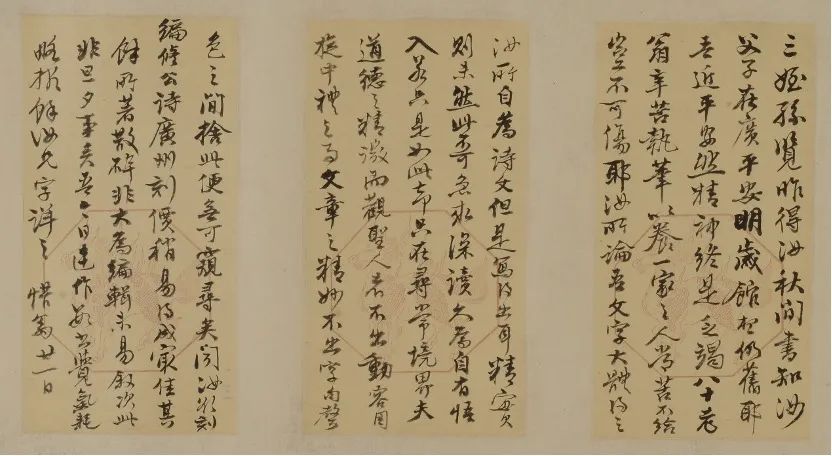 三姪孫覽昨得汝秋間書知汝
父子在廣平安明歲館想仍舊耶
吾近平安然精神終是乏竭八十老
翁辛苦執筆以養一家之人常苦不給
豈不可傷耶汝所論吾文字大體得之
汝所自為詩文但是寫得出耳精實
則未然此不可急求深讀久為自有悟
入若只是如此却只在尋常境界夫
道德之精微而觀聖人者不出動容周
旋中禮之事文章之精妙不出字句聲
色之間捨此便無可窺尋矣聞汝欲刻
編修公詩廣州刻價稍易得成最佳其
餘所著散碎非大為編輯未易敘次此
非旦夕事矣吾今日連作數書覺氣耗
略報餘汝兄字詳之 惜翁廿一日